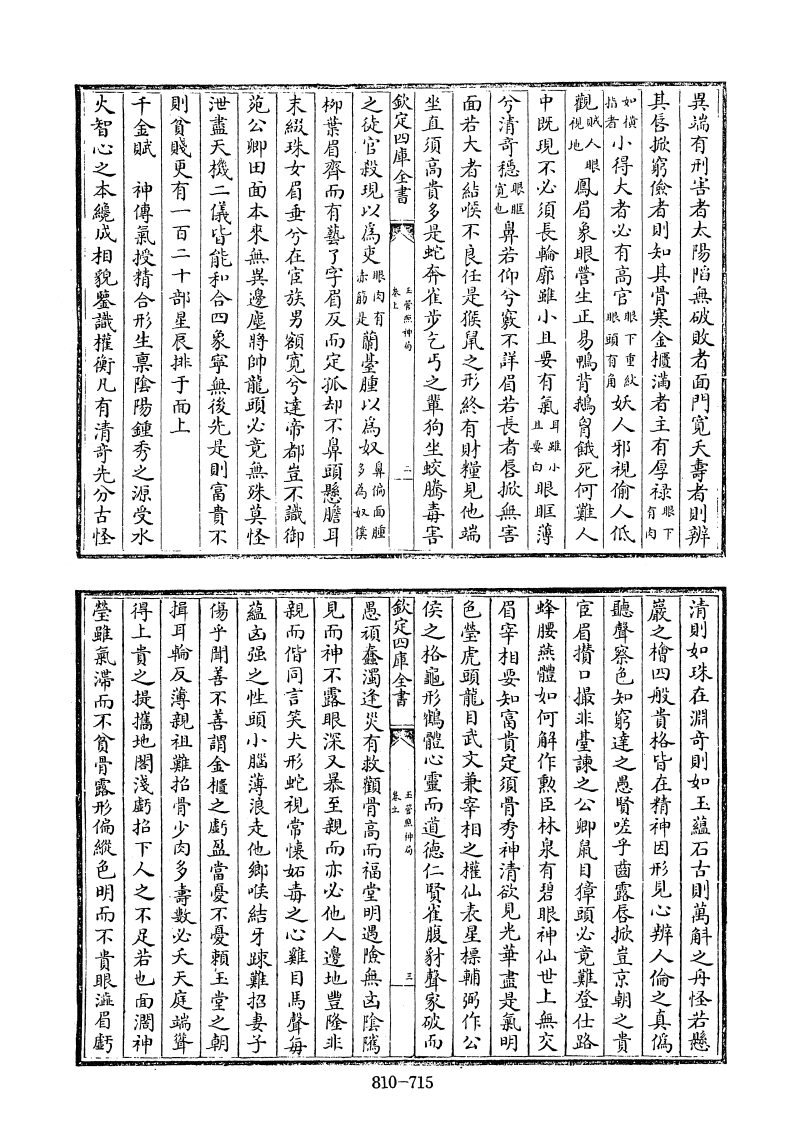 異端有刑害者太陽陷無破敗者面門寛夭壽者則辨
其唇掀窮儉者則知其骨寒金櫃滿者主有厚禄眼下有肉
如橫指者小得大者必有高官眼下重紋眼頭有角妖人邪視偷人低
觀賊人眼視地鳳眉象眼營生正易鴨背鵝胷餓死何難人
中既現不必須長輪廓雖小且要有氣耳雖小且要白眼眶薄
兮清奇穩眼眶寛也鼻若仰兮竅不詳眉若長者唇掀無害
面若大者結喉不良任是猴鼠之形終有財糧見他端
坐直須高貴多是蛇奔雀步乞丐之輩狗坐蛟騰毒害
欽定四庫全書
玉管照神局
卷上
二
之徒官殺現以為吏眼肉有赤筋是蘭臺腫以為奴鼻偏面腫多為奴僕
柳葉眉齊而有藝了字眉反而定孤却不鼻頭懸膽耳
末綴珠女眉垂兮在宦族男額寛兮達帝都豈不識御
苑公卿田面本來無異邊塵將帥龍頭必竟無殊莫怪
泄盡天機二儀皆能和合四象寧無後先是則富貴不
則貧賤更有一百二十部星辰排于面上
千金賦　神傳氣授精合形生稟陰陽鍾秀之源受水
火智心之本纔成相貌鑒識權衡凡有清奇先分古怪
清則如珠在淵奇則如玉蘊石古則萬斛之丹怪若懸
巖之檜四般貴格皆在精神因形見心辨人倫之真偽
聽聲察色知窮達之愚賢嗟乎齒露唇掀豈京朝之貴
宦眉攢口撮非臺諫之公卿鼠目獐頭必竟難登仕路
蜂腰燕體如何解作勲臣林泉有碧眼神仙世上無交
眉宰相要知富貴定須骨秀神清欲見光華盡是氣明
色瑩虎頭龍目武文兼宰相之權仙表星標輔弼作公
侯之格龜形鶴體心靈而道德仁賢雀腹豺聲家破而
欽定四庫全書
玉管照神局
卷上
三
愚頑蠢濁逢災有救顴骨高而福堂明遇險無凶陰隲
見而神不露眼深又暴至親而亦必他人邊地豐隆非
親而偕同言笑犬形蛇視常懷妬毒之心雞目馬聲每
蘊凶强之性頭小腦薄浪走他鄉喉結牙疎難招妻子
傷乎聞善不善謂金櫃之虧盈當憂不憂賴玉堂之朝
揖耳輪反薄親祖難招骨少肉多壽數必夭天庭端聳
得上貴之提攜地閣淺虧招下人之不足若也面濶神
瑩雖氣滯而不貧骨露形偏縱色明而不貴眼澁眉虧
810-715